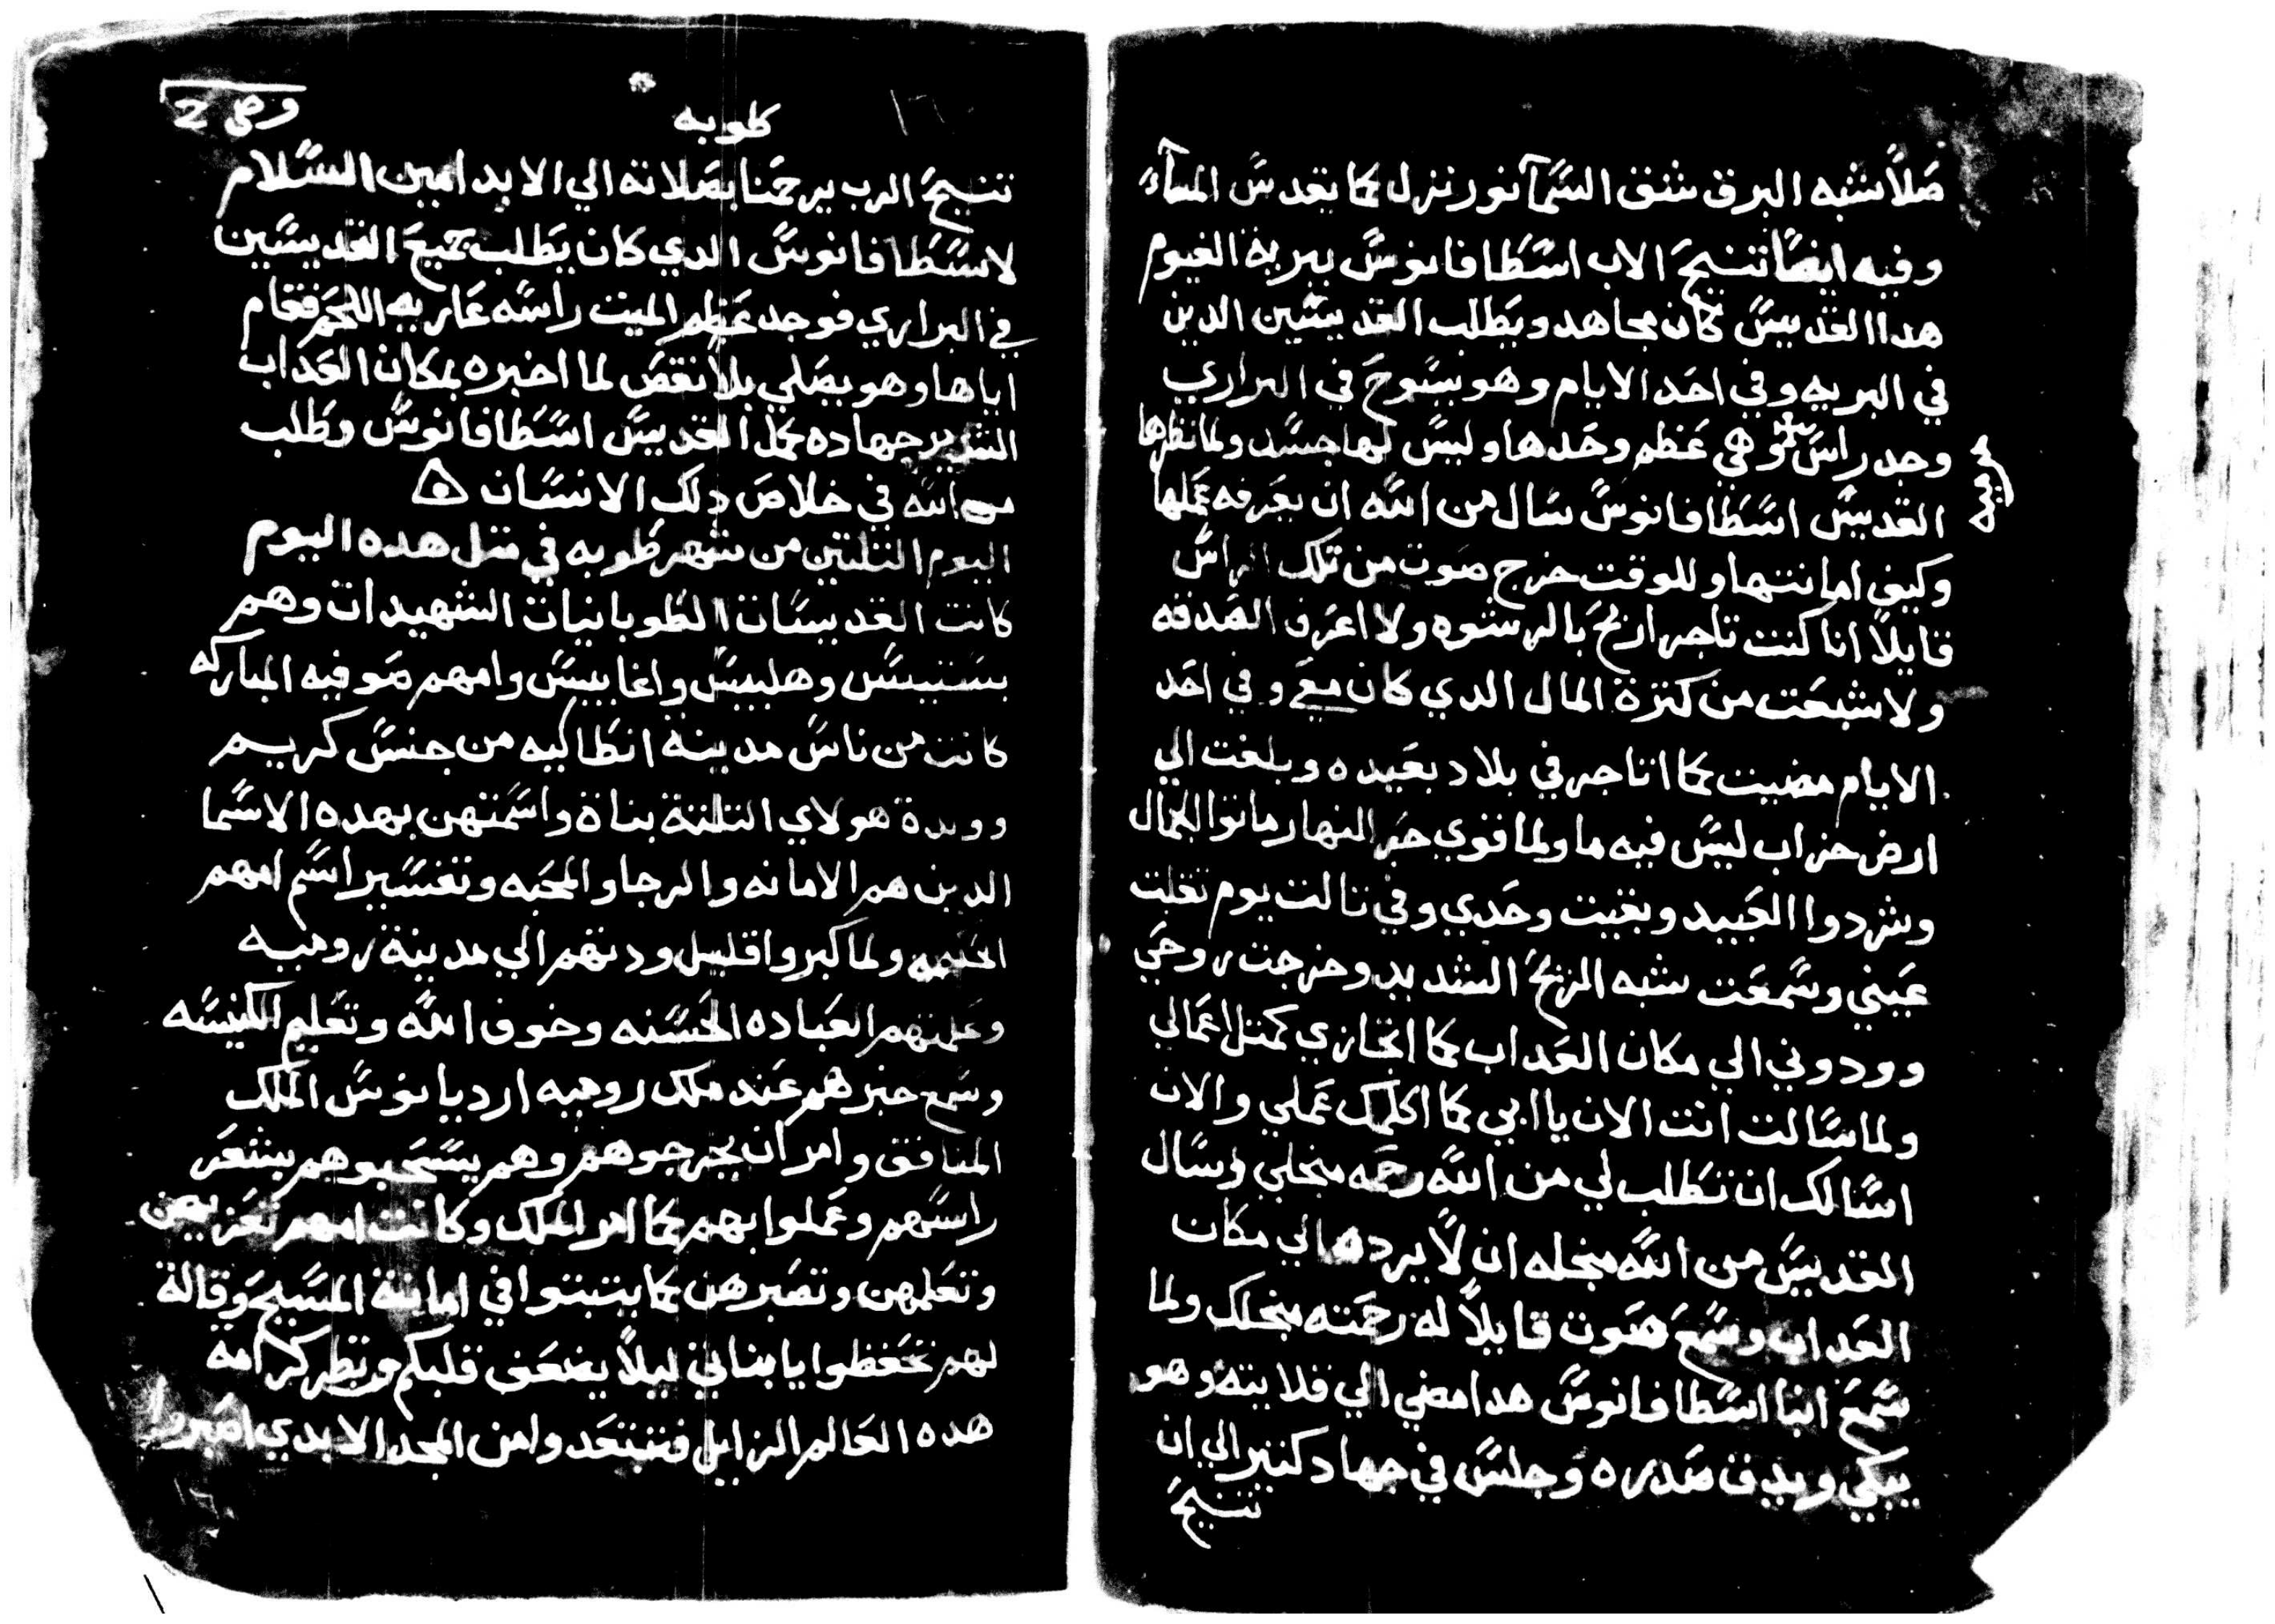 صلاً شبه البرق شقق السمآ نور نزل كما يقدس المسآء
وفيه ايضاً تنيح الاب اسطافانوس ببرية الفيوم
هدا القديس كان مجاهد ويطلب القديسين الدين
في البريه وفي احد الايام وهو يسوح في البراري
وجد راس وهي عظم وحدها وليس لها جسد ولما نظرها
القديس اسطافانوس سال من الله ان يعرفه عملها
وكيف امانتها وللوقت خرج صوت من تلك الراس
قايلاً انا كنت تاجر اربح بالرشوه ولا اعرف الصدقه
ولا شبعت من كترة المال الدي كان معي وفي احد
الايام مضيت كما اتاجر في بلاد بعيده وبلغت الي
ارض خراب ليس فيه ما ولما قوي حر النهار ماتوا الجمال
وشردوا العبيد وبقيت وحدي وفي تالت يوم تقلبت
عيني وسمعت شبه الريح الشديد وخرجت روحي
وودوني الي مكان العداب كما اتجازي كمتل اعمالي
ولما سالت انت الان يا ابي كما اكلمك عملي والان
اسالك ان تطلب لي من الله رحمه منجلي وسال
القديس من الله منجله ان لا يرده الي مكان
العداب وسمع صوت قايلاً له رحمته منجلك ولما
سمع انبا اسطافانوس هدا مضي الي قلايته وهو
يبكي ويدق صدره وجلس في جهاد كتير الي ان
تنيح
طوبه
تنيح الرب يرحمنا بصلاته الي الابد امين السلام
لاسطافانوس الدي كان يطلب جميع القديسين
في البراري فوجد عظم الميت راسه عاريه اللحم فقام
اياها وهو يصلي بلا نقص لما اخبره بمكان العداب
الشرير جهاده كمل القديس اسطافانوس وطلب
من الله في خلاص دلك الانسان
اليوم التلتين من شهر طوبه في متل هده اليوم
كانت القديسات الطوبانيات الشهيدات وهم
بستيس وهلبيس واغابيس وامهم صوفيه المباركه
كانت من ناس مدينة انطاكيه من جنس كريم
وولدة هولاي التلتة بناة واسمتهن بهده الاسما
الدين هم الامانه والرجا والمحبه وتفسير اسم امهم
الحكمه ولما كبروا قليل ودتهم الي مدينة روميه
وعلمتهم العباده الحسنه وخوف الله وتعليم الكنيسه
وسمع خبرهم عند ملك روميه ارديانوس الملك
المنافق وامر ان يخرجوهم وهم يسحبوهم بشعر
راسهم وعملوا بهم كما امر الملك وكانت امهم تعزيهن
وتعلمهن وتصبرهن كما يتبتوا في امانة المسيح وقالة
لهم تحفظوا يا بناتي ليلاً يضعف قلبكم وتنظر كرامة
هده العالم الزايل فتبتعدوا من المجد الابدي اصبروا